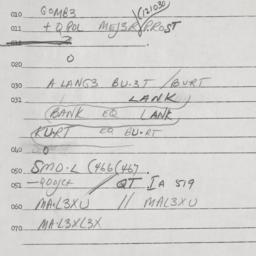 010 GOMB3
011 + QPOL MEJ3R/P.ROST (12/030)
2
020
0
030 A LANG3 BU.3T / BURT
032 LANK
BANK EQ LANK
KURT EQ BU.RT
040 0
050 SMO.L (466(467
052 QT IA 519
060 MA.L3XU // MAL3XU
070 MA.L3XL3X